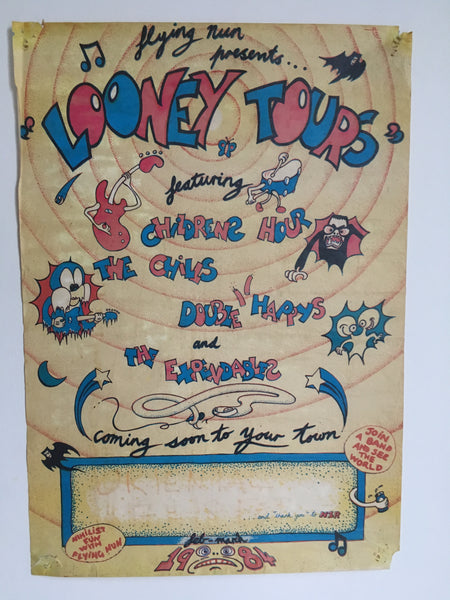 flying nun
presents...
"LOONEY TOURS"
featuring
CHILDRENS HOUR
THE CHILLS
DOUBLE HAPPYS
and
THE EXPENDABLES
coming soon to your town
JOIN
A BAND
AND SEE
THE
WORLD
and "thank you" to
NIHILIST
FUN
WITH
FLYING NUN
feb - march
1984